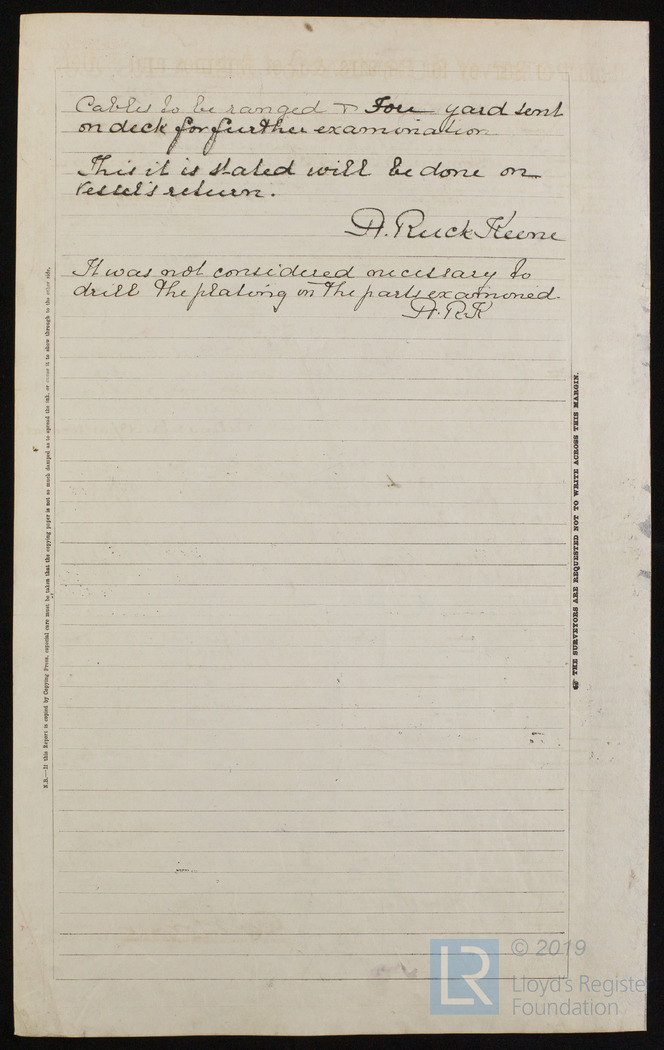 Cables to be ranged & Fore yard sent
on deck for further examination
This it is stated will be done on
vessel's return.
H. Ruck Keene
It was not considered necessary to
drill the plating in the parts examined.
H.R.K
N.B.—If this Report is copied by Copying Press, especial care must be taken that the copying paper is not so much damped as to spread the ink, or cause it to show through to the other side.
☞ THE SURVEYORS ARE REQUESTED NOT TO WRITE ACROSS THIS MARGIN.
LR
© 2019
Lloyd's Register
Foundation